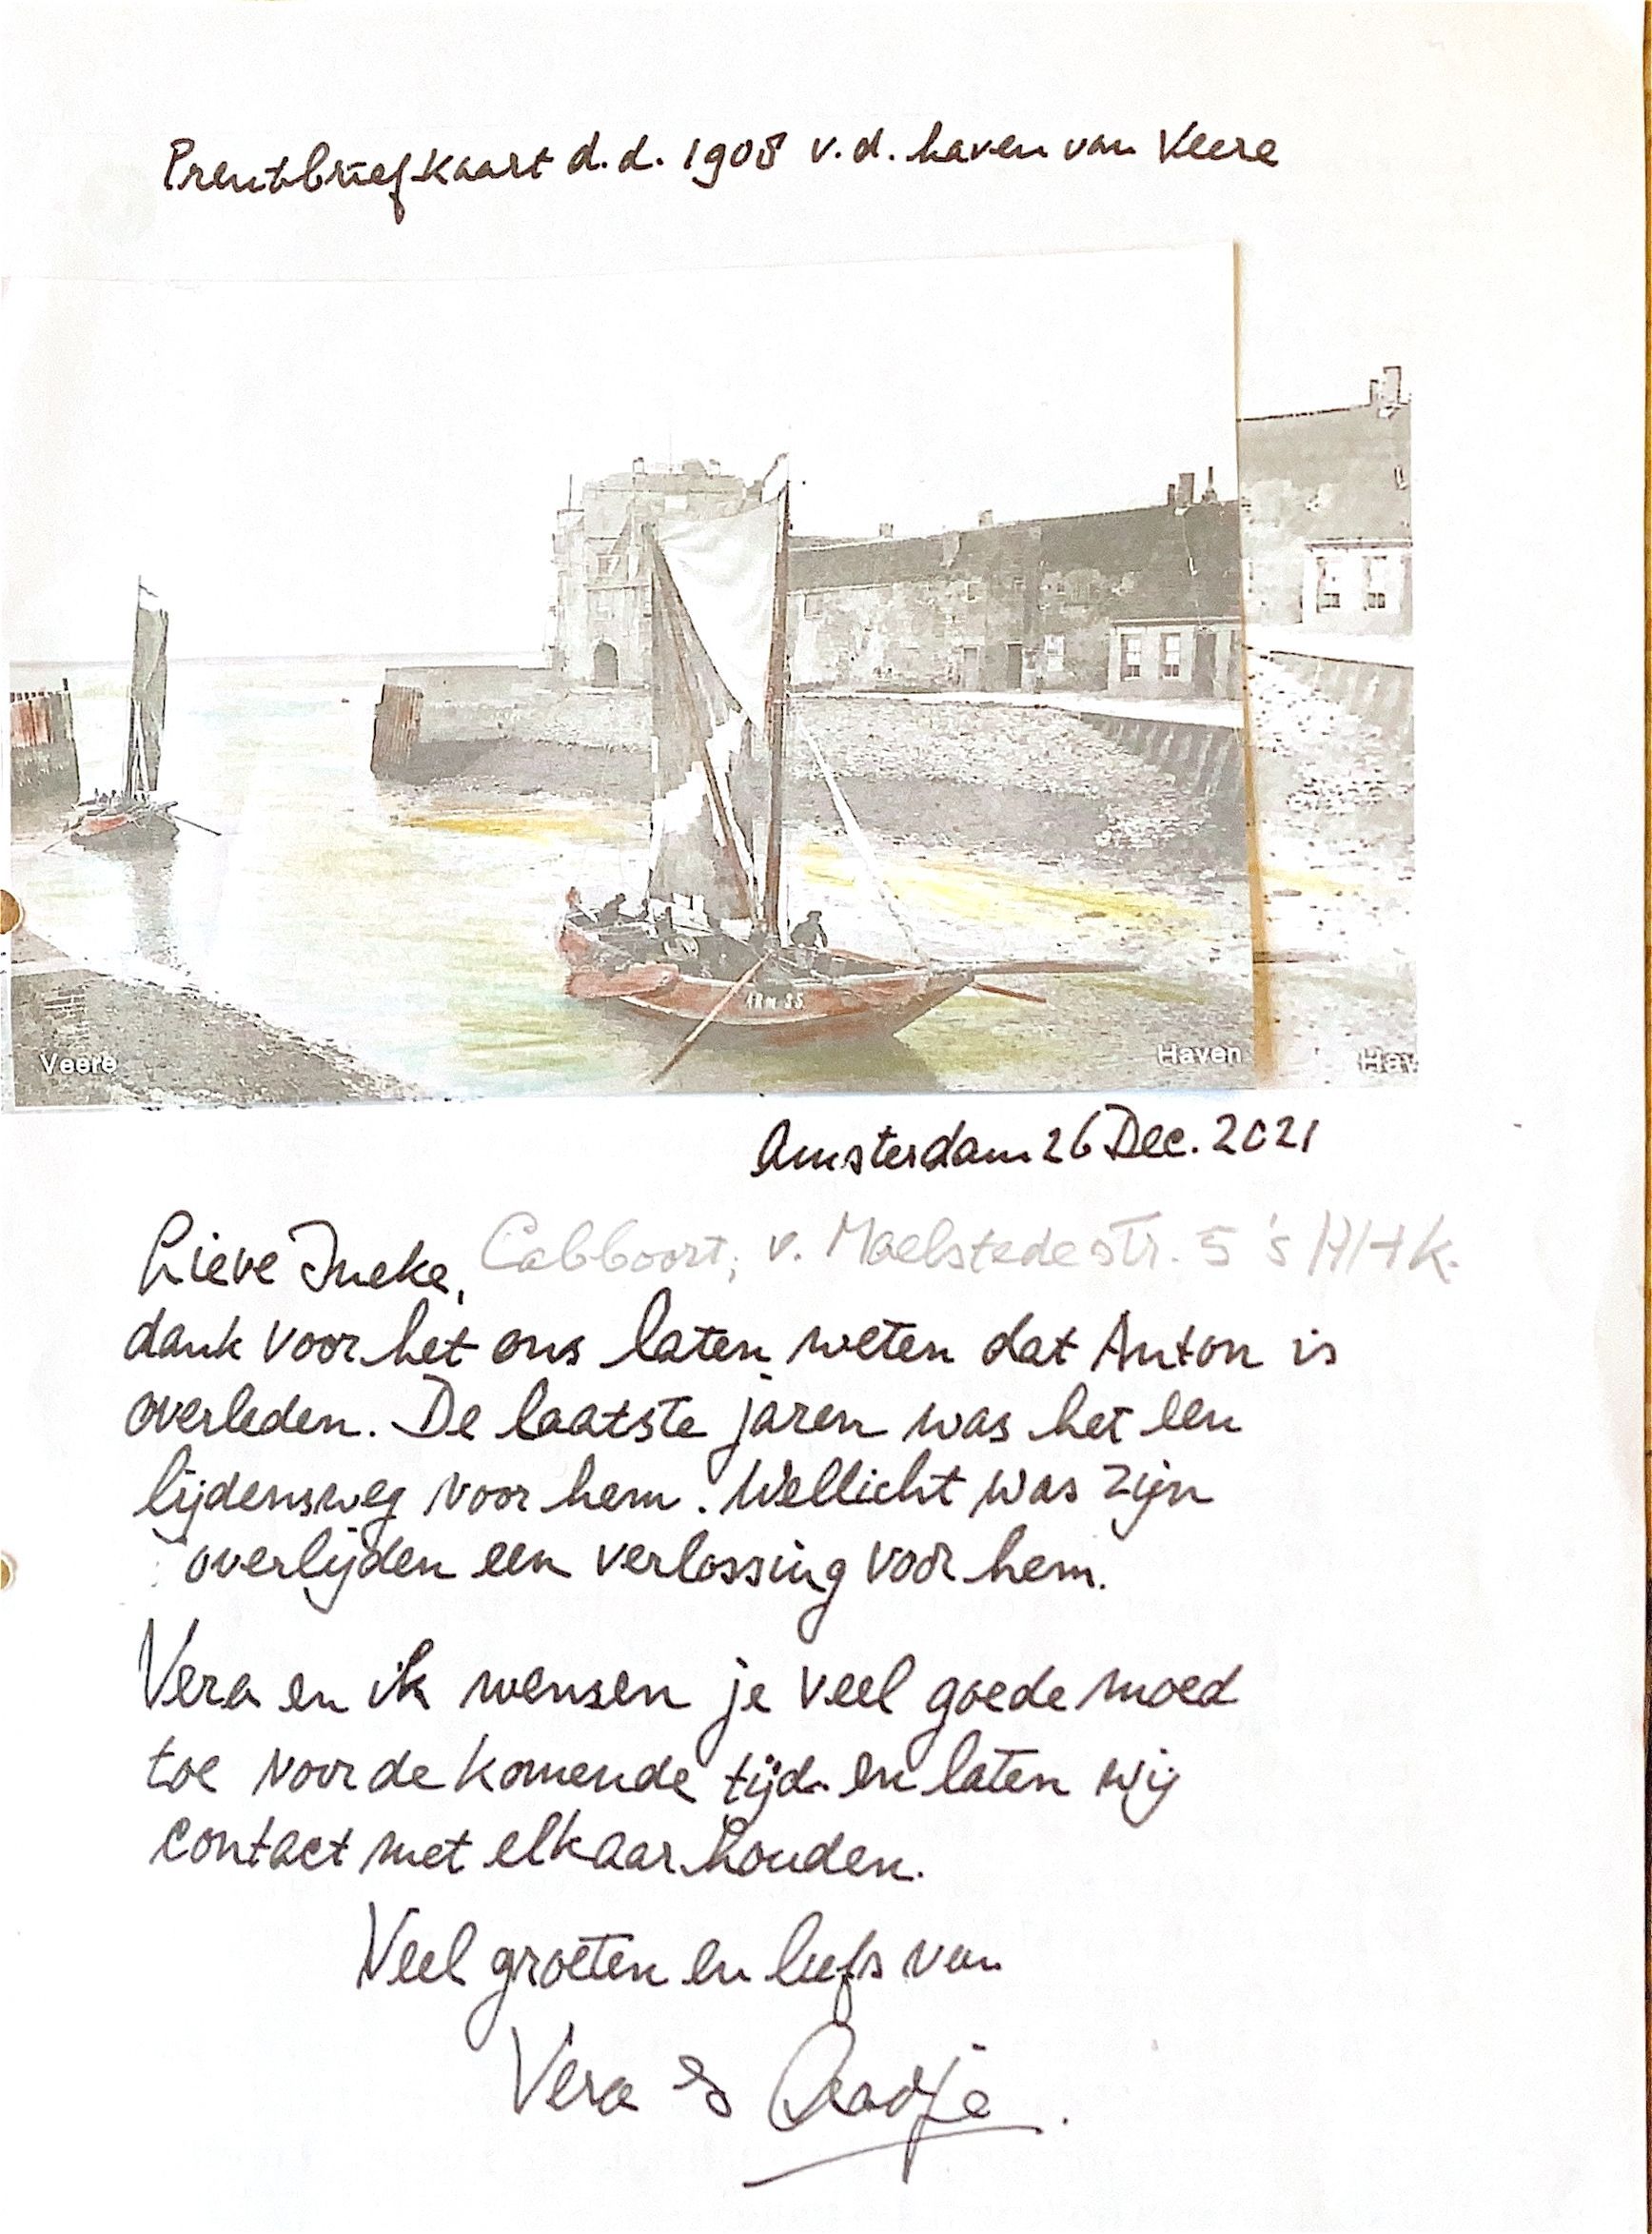 Prentbriefkaart d.d. 1908 v.d. haven van Veere
ARM 35
Veere
Haven
Hav
Amsterdam 26 Dec. 2021
Lieve Ineke, Cabboort, v. Maelstedestr. 5 's H/H k.
dank voor het ons laten weten dat Anton is
overleden. De laatste jaren was het een
lijdensweg voor hem. Wellicht was zijn
overlijden een verlossing voor hem.
Vera en ik wensen je veel goede moed
toe voor de komende tijd en laten wij
contact met elkaar houden.
Veel groeten en liefs van
Vera &